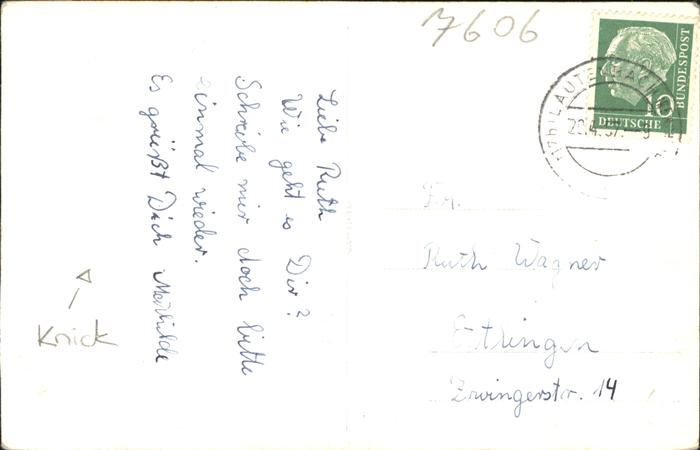 7606
DEUTSCHE
10
BUNDESPOST
LAUTENBACH
Liebe Ruth
Wie geht es Dir?
Schreibe mir doch bitte
einmal wieder.
Es grüßt Dich Mathilde
Knick
Frl.
Ruth Wagner
Ettringen
Zwingerstr. 14